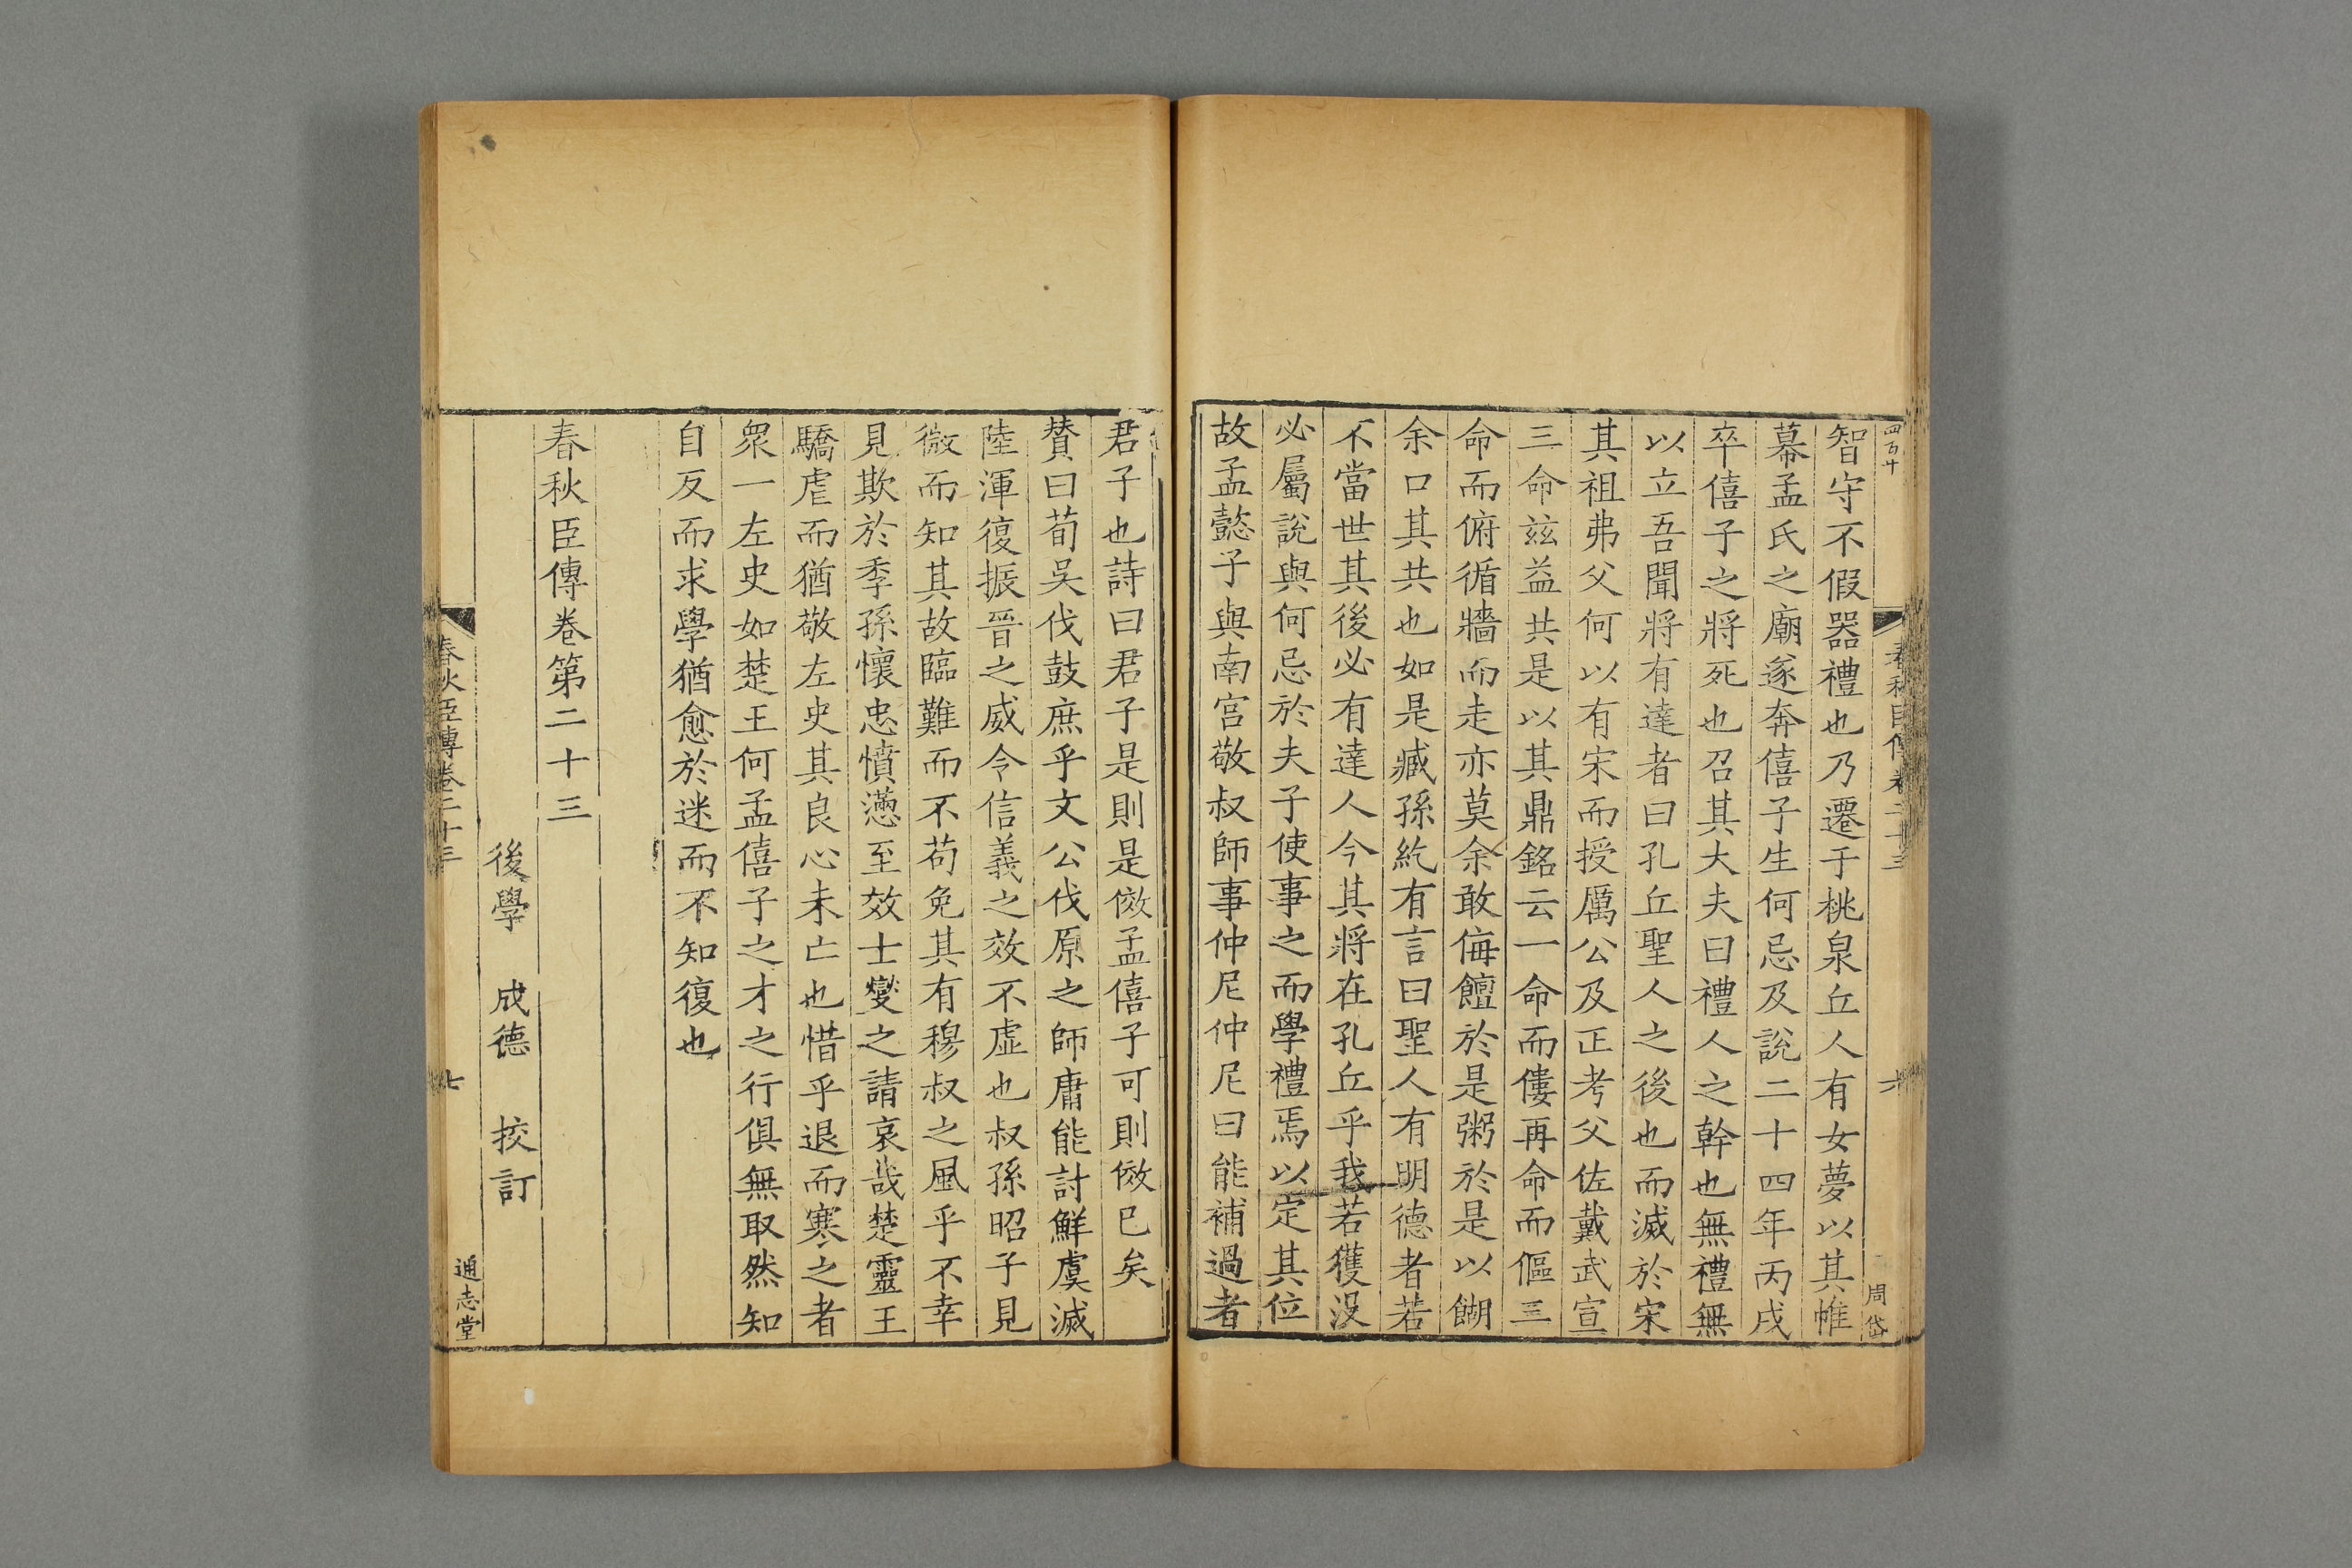 四百十
春秋臣傳卷二十三
六
周岱
智守不假器禮也乃遷于桃泉丘人有女夢以其帷
幕孟氏之廟遂奔僖子生何忌及說二十四年丙戌
卒僖子之將死也召其大夫曰禮人之幹也無禮無
以立吾聞將有達者曰孔丘聖人之後也而滅於宋
其祖弗父何以有宋而授厲公及正考父佐戴武宣
三命茲益共是以其鼎銘云一命而僂再命而傴三
命而俯循牆而走亦莫余敢侮饘於是粥於是以餬
余口其共也如是臧孫紇有言曰聖人有明德者若
不當世其後必有達人今其將在孔丘乎我若獲沒
必屬說與何忌於夫子使事之而學禮焉以定其位
故孟懿子與南宮敬叔師事仲尼仲尼曰能補過者
君子也詩曰君子是則是傚孟僖子可則傚已矣
贊曰荀吳伐鼓庶乎文公伐原之師庸能討鮮虞滅
陸渾復振晉之威令信義之效不虛也叔孫昭子見
微而知其故臨難而不苟免其有穆叔之風乎不幸
見欺於季孫懷忠憤懣至效士燮之請哀哉楚靈王
驕虐而猶敬左史其良心未亡也惜乎退而寒之者
眾一左史如楚王何孟僖子之才之行俱無取然知
自反而求學猶愈於迷而不知復也
春秋臣傳卷第二十三
後學 成德 挍訂
春秋臣傳卷二十三
七
通志堂